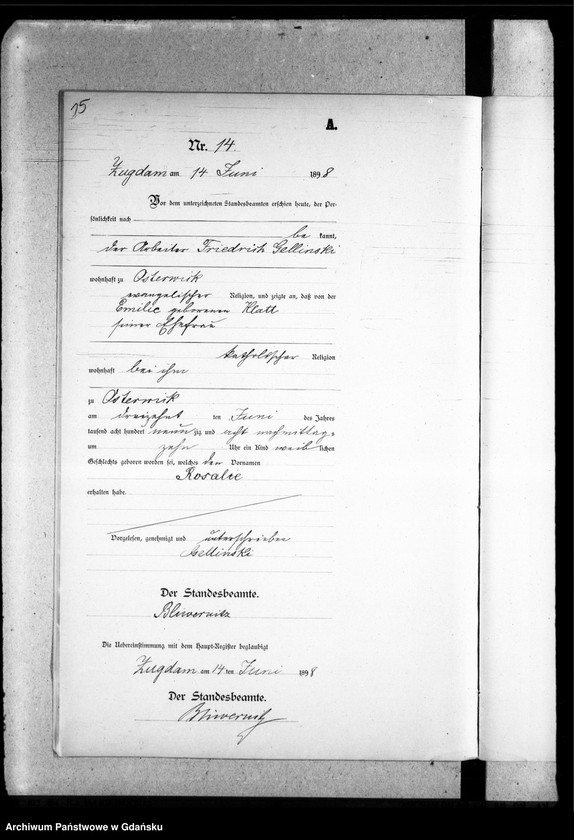 75
A.
Nr. 14.
Zugdam am 14 Juni 1898
Vor dem unterzeichneten Standesbeamten erschien heute, der Per-
sönlichkeit nach
be kannt,
der Arbeiter Friedrich Gellinski
wohnhaft zu Osterwick
evangelischer Religion, und zeigte an, daß von der
Emilie geborenen Klatt
seiner Ehefrau
katholischer Religion
wohnhaft bei ihm
zu Osterwick
am dreizehn ten Juni des Jahres
tausend acht hundert neun zig und acht nachmittags
um zehn Uhr ein Kind weib lichen
Geschlechts geboren worden sei, welches den Vornamen
Rosalie
erhalten habe.
Vorgelesen, genehmigt und unterschrieben
Gellinski
Der Standesbeamte.
Bliwernitz
Die Uebereinstimmung mit dem Haupt-Register beglaubigt
Zugdam am 14 ten Juni 1898
Der Standesbeamte.
Bliwernitz
Archiwum Państwowe w Gdańsku